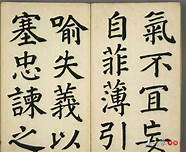 氣不宜妄
自菲薄引
喻失義以
塞忠諫之